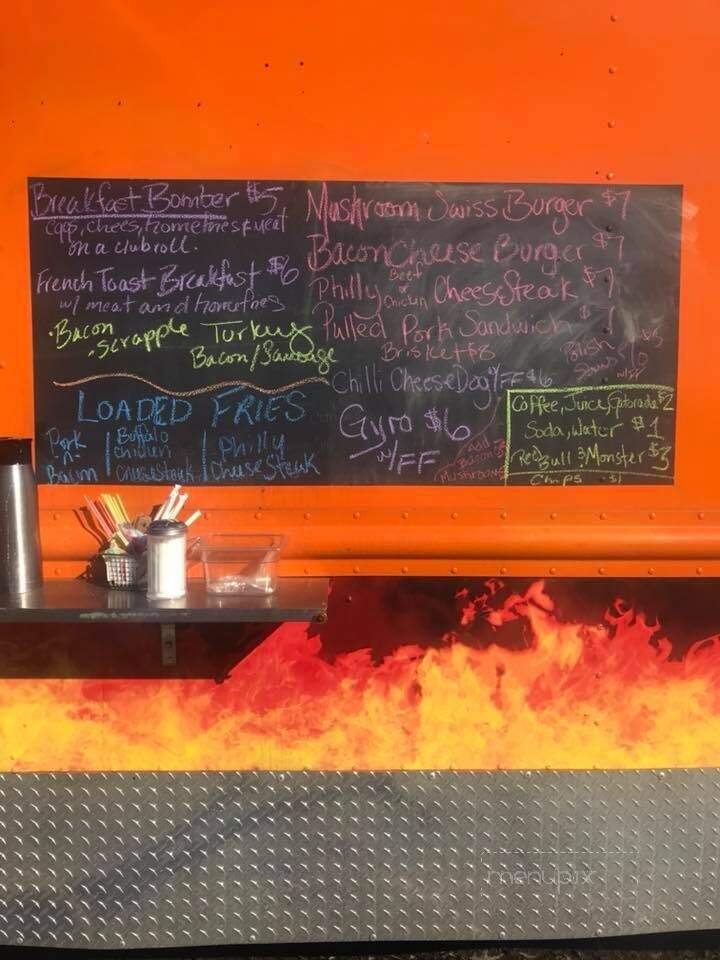 Breakfast Bomber $5
Eggs, chees, homefries & meat
on a clubroll.
French Toast Breakfast $6
w/ meat and homefries
• Bacon
• Scrapple
Turkey
Bacon/Sausage
LOADED FRIES
Pork
n
Bacon
Buffalo
chicken
cheesesteak
Philly
Cheese Steak
Mushroom Swiss Burger $7
Bacon Cheese Burger $7
Philly Beef or Chicken CheeseSteak $7
Pulled Pork Sandwich $7
Brisket $8
Polish
Chilli CheeseDog w/FF $6
Gyro $6
w/FF
add
Bacon
Mushrooms
Coffee, Juice, Gatorade $2
Soda, Water $1
Red Bull & Monster $3
Chips $1
menupix